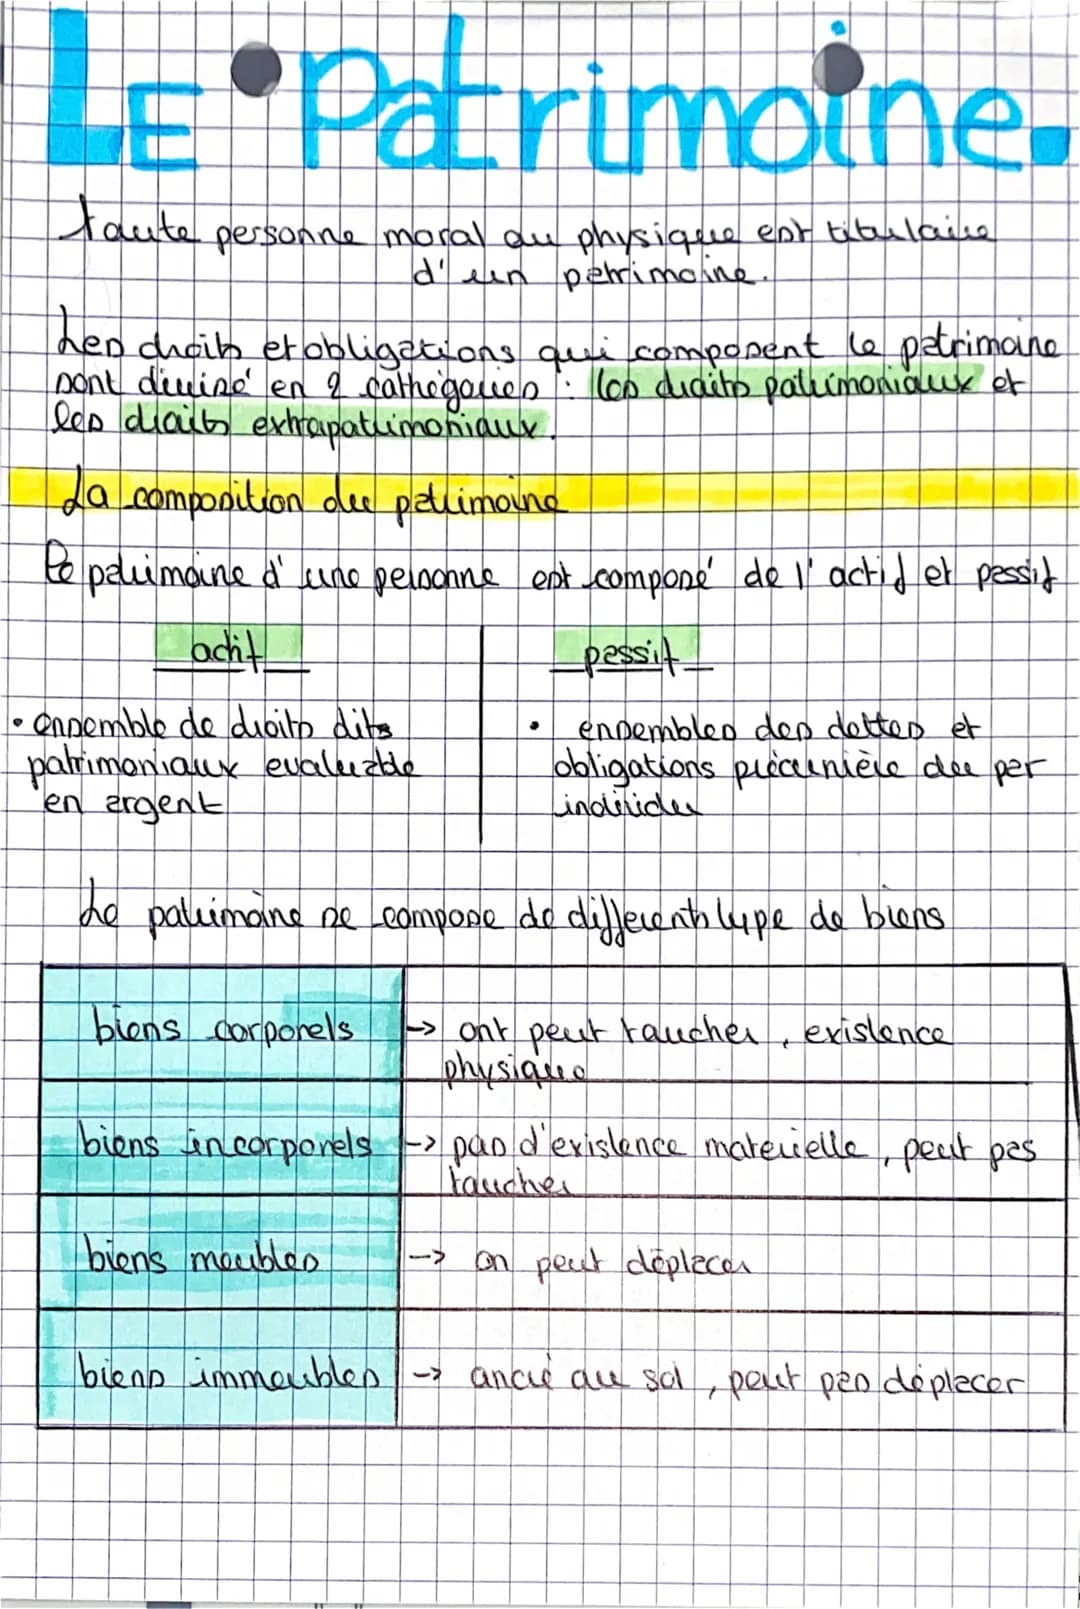 LE Patrimoine.
toute personne moral ou physique est titulaire
d'un patrimoine.
Les droits et obligations qui composent le patrimoine
sont divisé en 2 cathégories : les droits patrimoniaux et
les droits extrapatrimoniaux.
La composition du patrimoine
Le patrimoine d'une personne est composé de l'actif et passif
actif
passif
• ensemble de droits dits
patrimoniaux evaluable
en argent
• ensembles des dettes et
obligations précunière du par
individu
Le patrimoine se compose de differents type de biens
biens corporels
→ ont peut toucher, existence
physique
biens incorporels
→ pas d'existence materielle, peut pas
toucher
biens meubles
→ on peut déplacer
biens immeubles
→ ancré au sol, peut pas déplacer